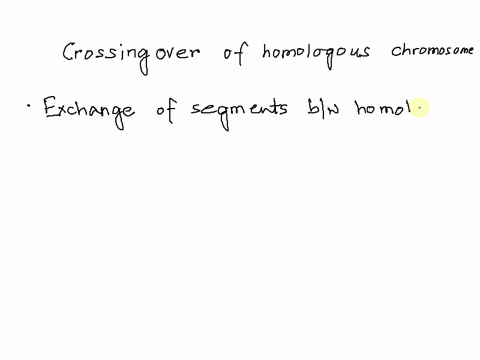 Crossing over of homologous chromosome
· Exchange of segments b/w homol